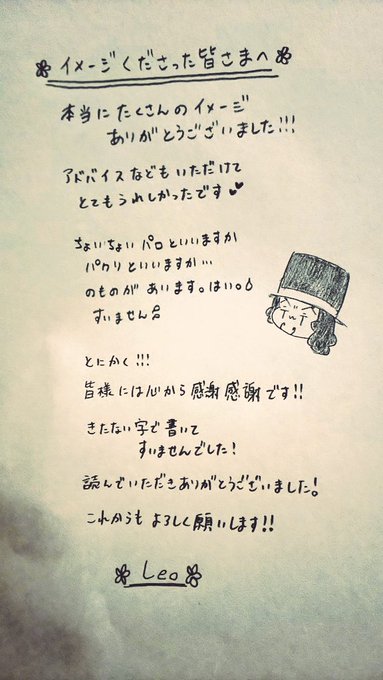 イメージくださった皆さまへ
本当にたくさんのイメージ
ありがとうございました!!!
アドバイスなどもいただけて
とてもうれしかったです
ちょいちょいパロといいますか
パクリといいますか…
のものがあります。はい。
すいません
とにかく!!!
皆様には心から感謝感謝です!!
きたない字で書いて
すいませんでした!
読んでいただきありがとうございました!
これからもよろしく願いします!!
Leo